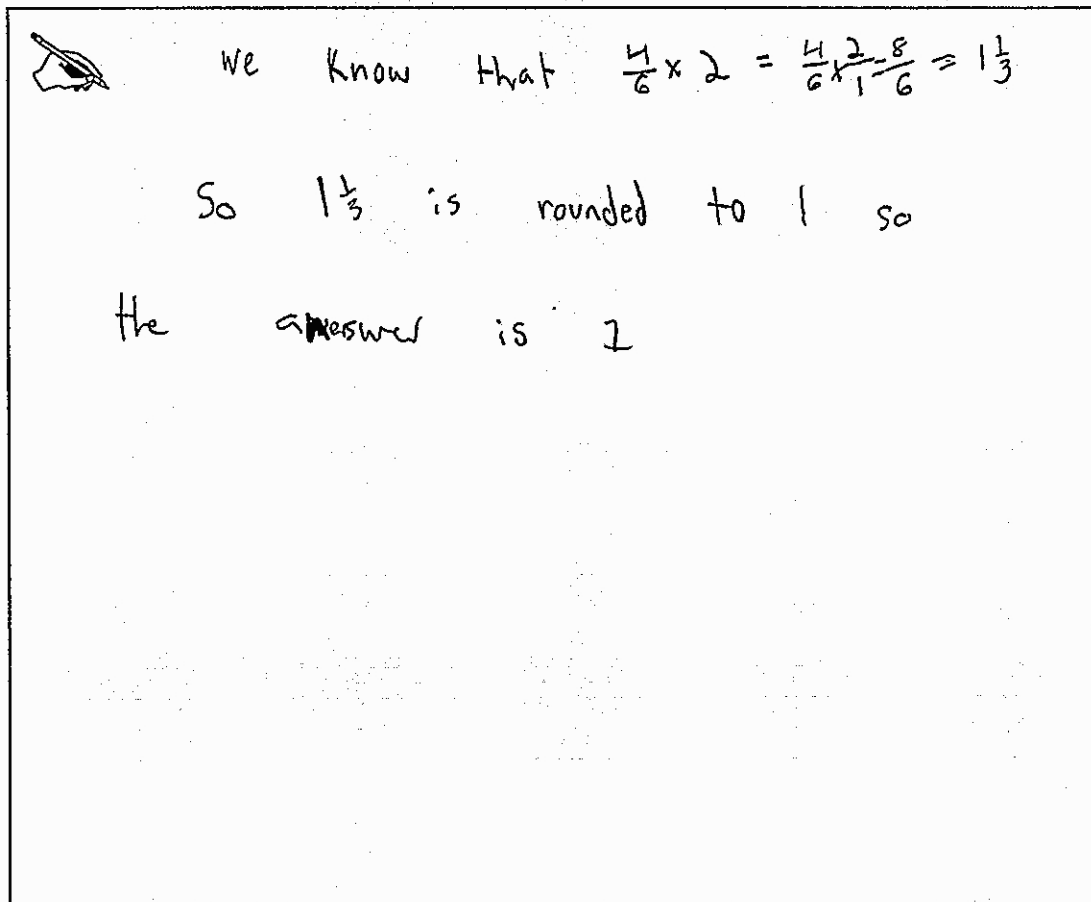 We know that 4/6 x 2 = 4/6 x 2/1 = 8/6 = 1 1/3
So 1 1/3 is rounded to 1 so
the answer is 1